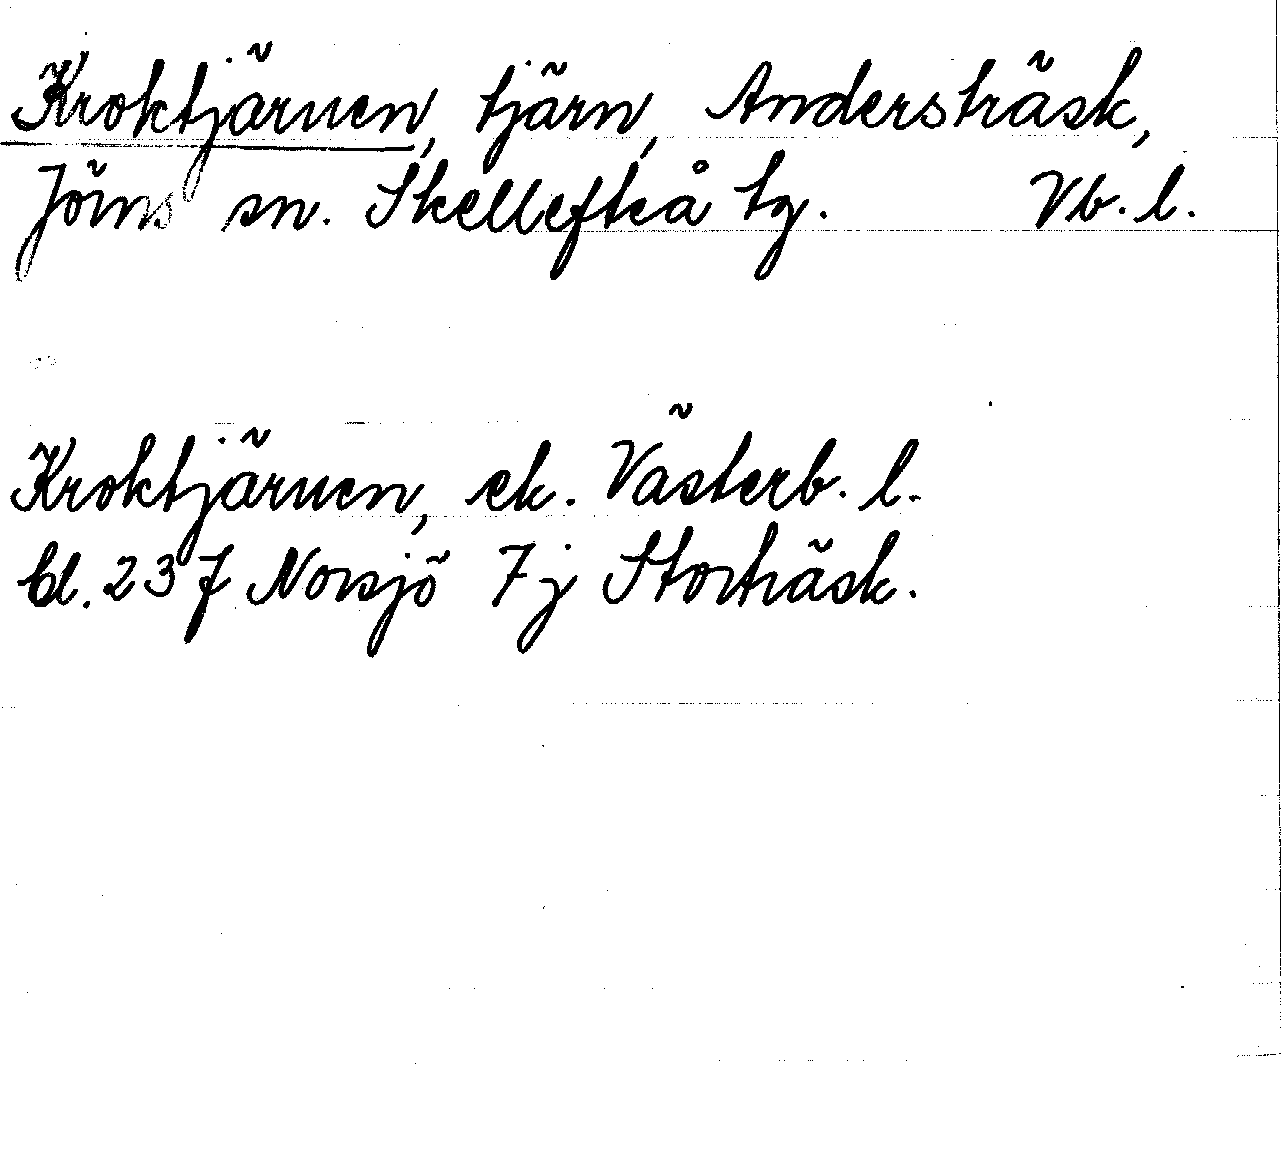 Kroktjärnen, tjärn, Andersträsk,
Jörns sn. Skellefteå tg. Vb. l.
Kroktjärnen, ek. Västerb. l.
bl. 237 Norsjö 7j Storträsk.